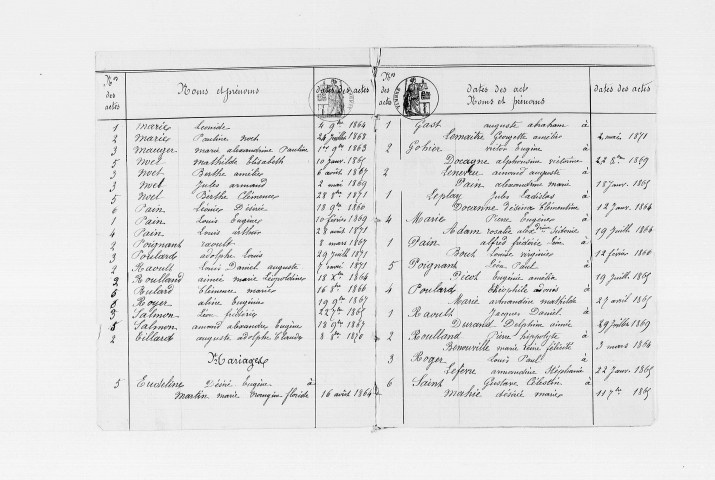 Nos des actes Noms et prénoms dates des actes
1 Marie Leonide 4 9bre 1864
2 Marie Pauline Noël 24 juillet 1868
3 Mauger marie alexandrine Pauline 1er 9bre 1863
5 Noël Mathilde Elisabeth 10 janv. 1865
3 Noël Berthe amélie 6 août 1867
3 Noël Jules armand 2 mai 1869
5 Noël Berthe Clémence 28 8bre 1871
6 Pain Léonie Désirée 18 9bre 1860
1 Pain Louis Eugène 10 février 1869
4 Pain Louis arthur 28 août 1871
2 Poignant raoult 8 mars 1867
3 Poulard adolphe Louis 29 juillet 1871
2 Raoult Louis Daniel auguste 7 mai 1871
2 Roulland aimée marie Léopoldine 18 Xbre 1864
6 Rulard Clémence marie 16 8bre 1866
8 Royer albine Eugénie 19 9bre 1867
3 Salmon Léon 22 7bre 1865
8 Salmon amand alexandre Eugène 18 9bre 1867
2 Tillard auguste adolphe 8 8bre 1870
Mariages
5 Eudeline Désiré Eugène à
Martin marie floride 16 août 1864
Nos des actes dates des act Noms et prénoms dates des actes
1 Gast auguste abraham à
Lemaitre Georgette amélie 2 mai 1871
2 Gohier victor Eugène à
Docagne alphonsine victorine 22 8bre 1869
2 Leneveu amand auguste à
Pain alexandrine marie 18 janv. 1865
1 Leplay Jules Ladislas à
Douanne Désirée Clémentine 12 janv. 1864
4 Marie Pierre Eugène à
Adam rosalie 19 juillet 1864
1 Pain alfred frédéric Léon à
Bout Louise virginie 12 février 1866
5 Poignant Léon Paul à
Picot Eugénie amélia 19 juillet 1865
4 Poulard Théophile à
Marie armandine mathilde 27 avril 1865
1 Raoult Jacques Daniel à
Durand Delphine aimée 29 juillet 1869
2 Roulland Pierre hippolyte à
Benouville marie félicité 3 mars 1864
3 Roger Louis Paul à
Lefevre armandine Stéphanie 22 janv. 1865
6 Saint Gustave Célestin à
Mahié désirée marie 11 7bre 1865